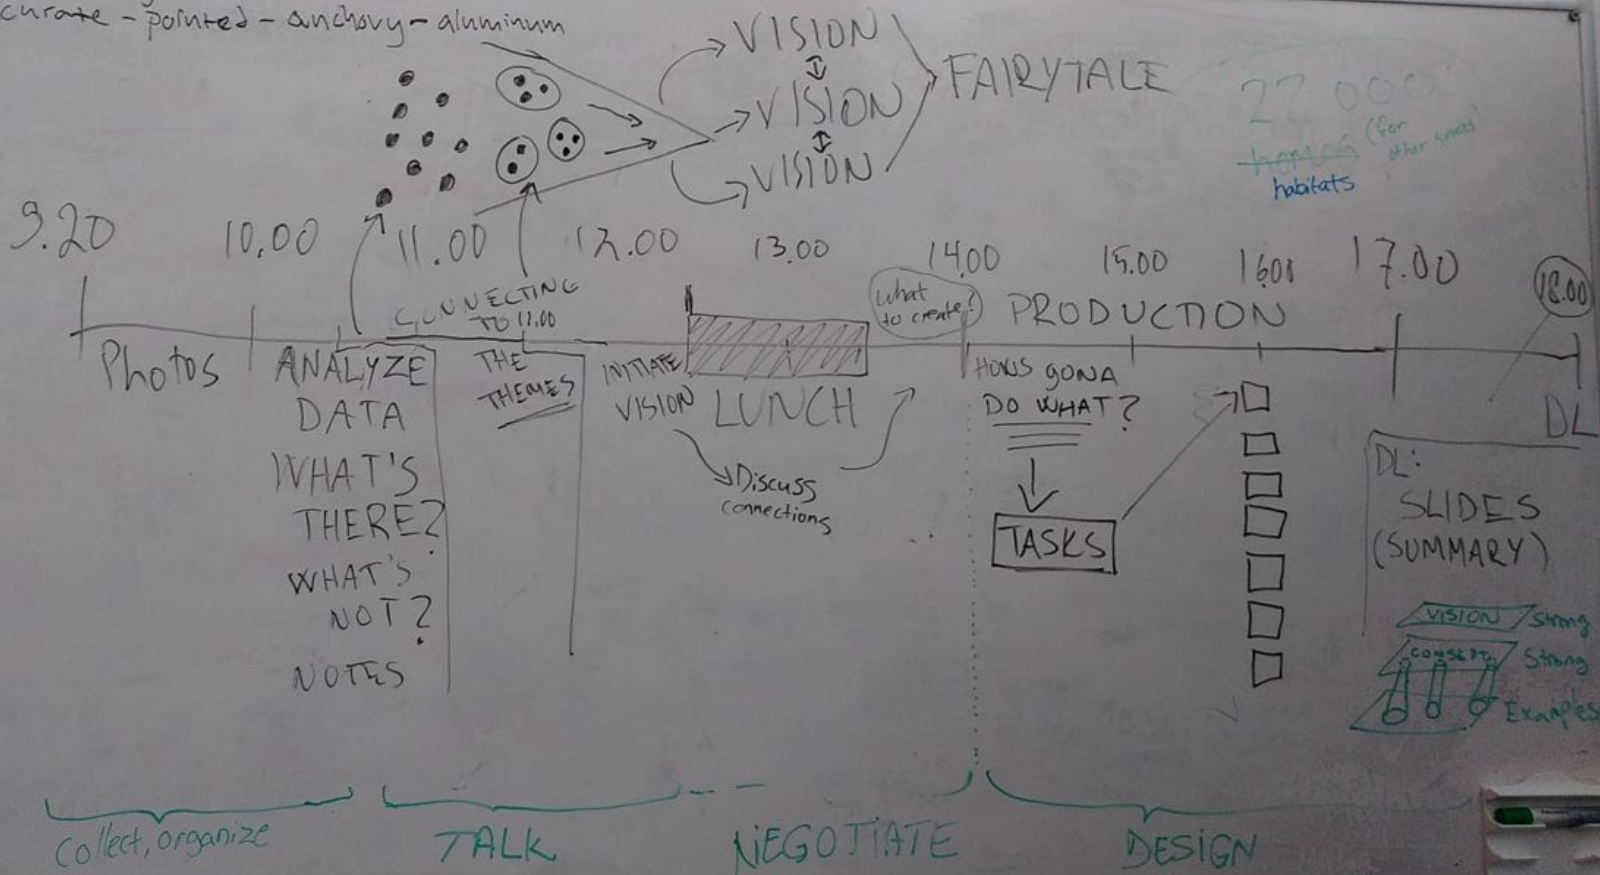 curate - pointed - anchovy - aluminum
VISION
VISION
VISION
FAIRYTALE
22 000
homes (for
other species)
habitats
9.20
10.00
11.00
12.00
13.00
14.00
15.00
16.00
17.00
18.00
CONNECTING
TO 11.00
what
to create?
PRODUCTION
Photos
ANALYZE
DATA
WHAT'S
THERE?
WHAT'S
NOT?
NOTES
THE
THEMES
INITIATE
VISION
LUNCH
Discuss
connections
HOWS GONA
DO WHAT?
TASKS
DL
DL:
SLIDES
(SUMMARY)
VISION Strong
CONSEPT Strong
Examples
Collect, organize
TALK
NEGOTIATE
DESIGN